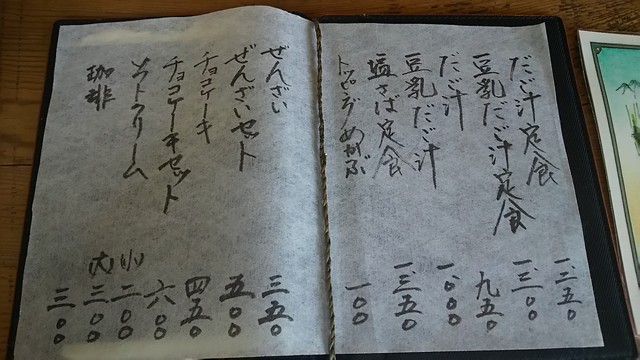 だご汁定食 一、二五〇
豆乳だご汁定食 一、三〇〇
だご汁 九五〇
豆乳だご汁 一、〇〇〇
塩さば定食 一、三五〇
トッピングめかぶ 一〇〇
ぜんざい 三五〇
ぜんざいセット 五〇〇
チョコケーキ 四五〇
チョコケーキセット 六〇〇
ソフトクリーム 小 二〇〇
大 三〇〇
珈琲 三〇〇